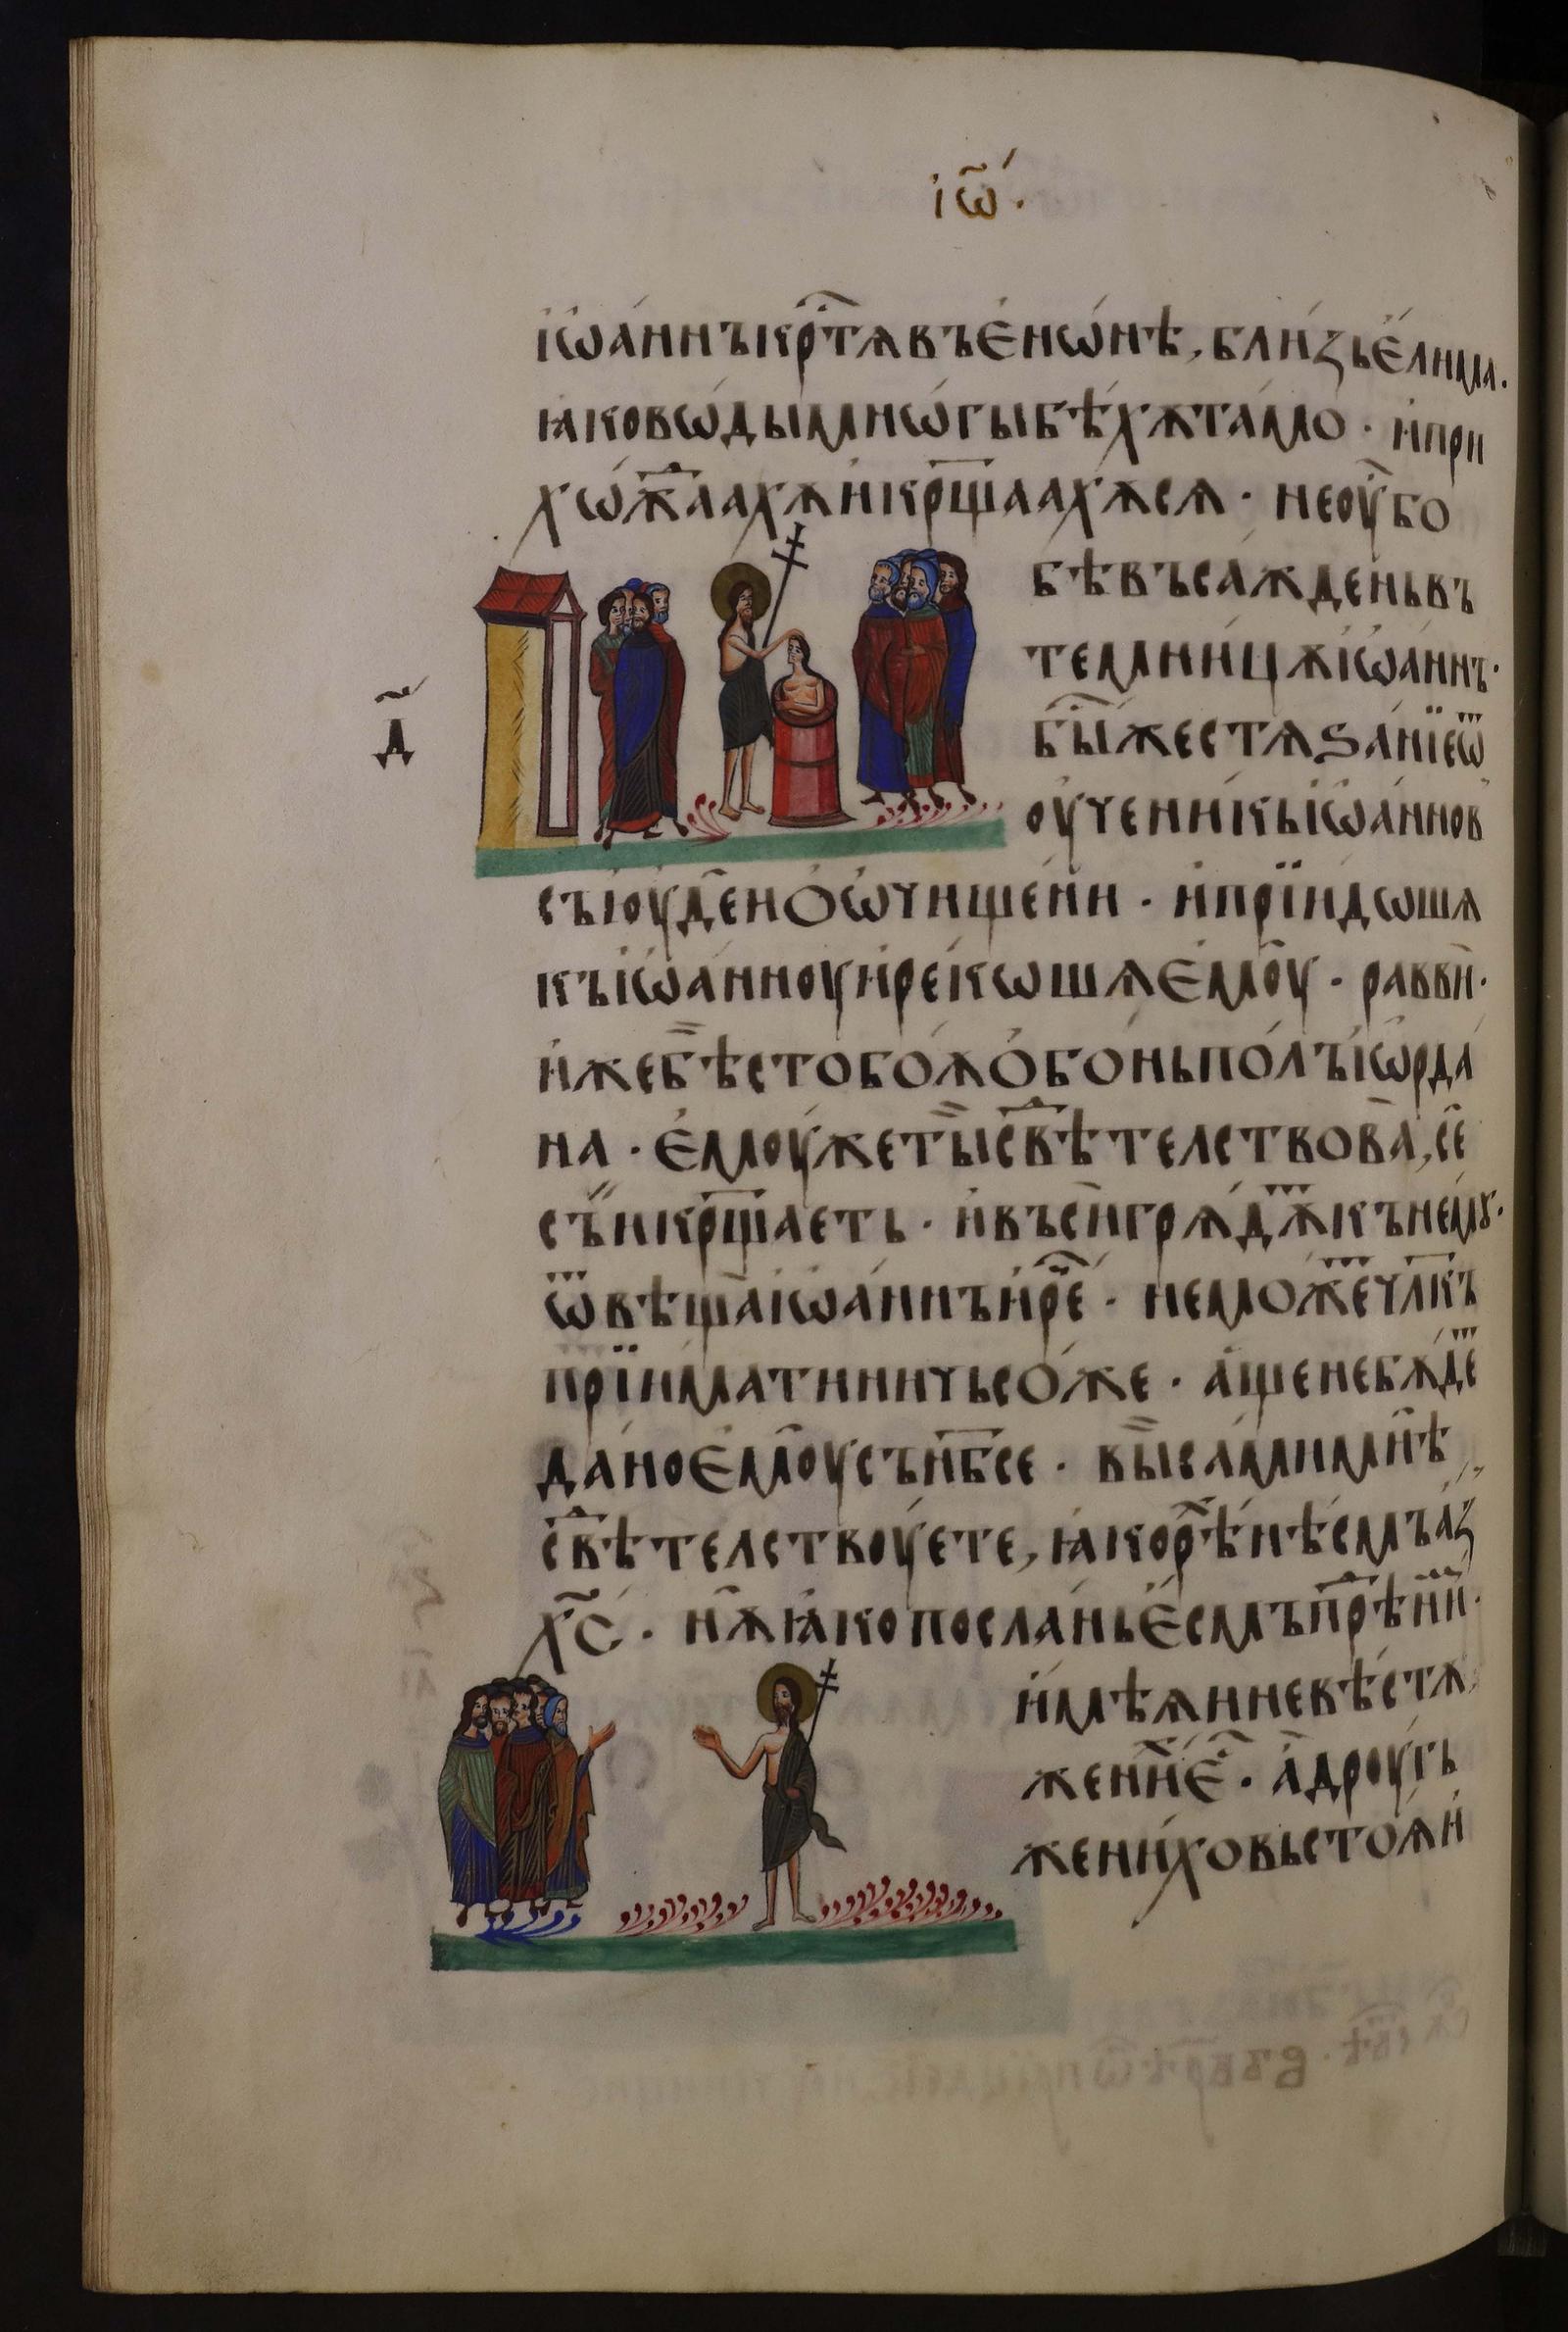 іѡ҃.
і҆ѡа́ннъкр҃тѧвъе҆нѡ́нѣ, бли́зье҆лима.
ꙗковѡ́дымнѡ́гыбѣ́хѫта́мо · и҆при
хѡ́ж҃аахѫи҆кр҃щаахѫсѧ · неоу҆́бо
бѣвъса́ждень въ
темни́цѫі҆ѡа́ннъ·
бы҃жестѧѕа́нїеѿ
оу҆чени́кьі҆ѡа́ннов
д҃
съі҆оуд҃енѻѡ҆чище́ни · и҆прїи́дѡшѧ
къі҆ѡа́нноуи҆ре́кѡшѧе҆м҃оу · равви̂·
и҆жеб̏ѣстобо́ѫѻ҆бо́ньпо́лъі҆ѡрда́
на · е҆моу́жеты̏св҃ѣтелствова̀, се̂
съ́икр҃щаеть · и҆въси̂грѧ́дѫ҃къне́мꙋ·
ѿвѣща̀і҆ѡа́ннъи҆ре҃ · немо́ж҃еч҃лкъ
прїи́матиничьсо́же · а҆́щенебѫ́д҃е
да́ное҆м҃оусън҃бсе · вы̏самимн҃ѣ
св҃ѣтелствоу́ете, ꙗ҆кор҃ѣхнѣ́смъа҆́з
х҃с · н҃ѫꙗ҆копосла́нье҆смъпр҃ѣни́м·
и҆мѣ́ѧиневѣ́стѫ,
жени҃е҃ · а҆дроу́гь
жени́ховьстоѧ́и